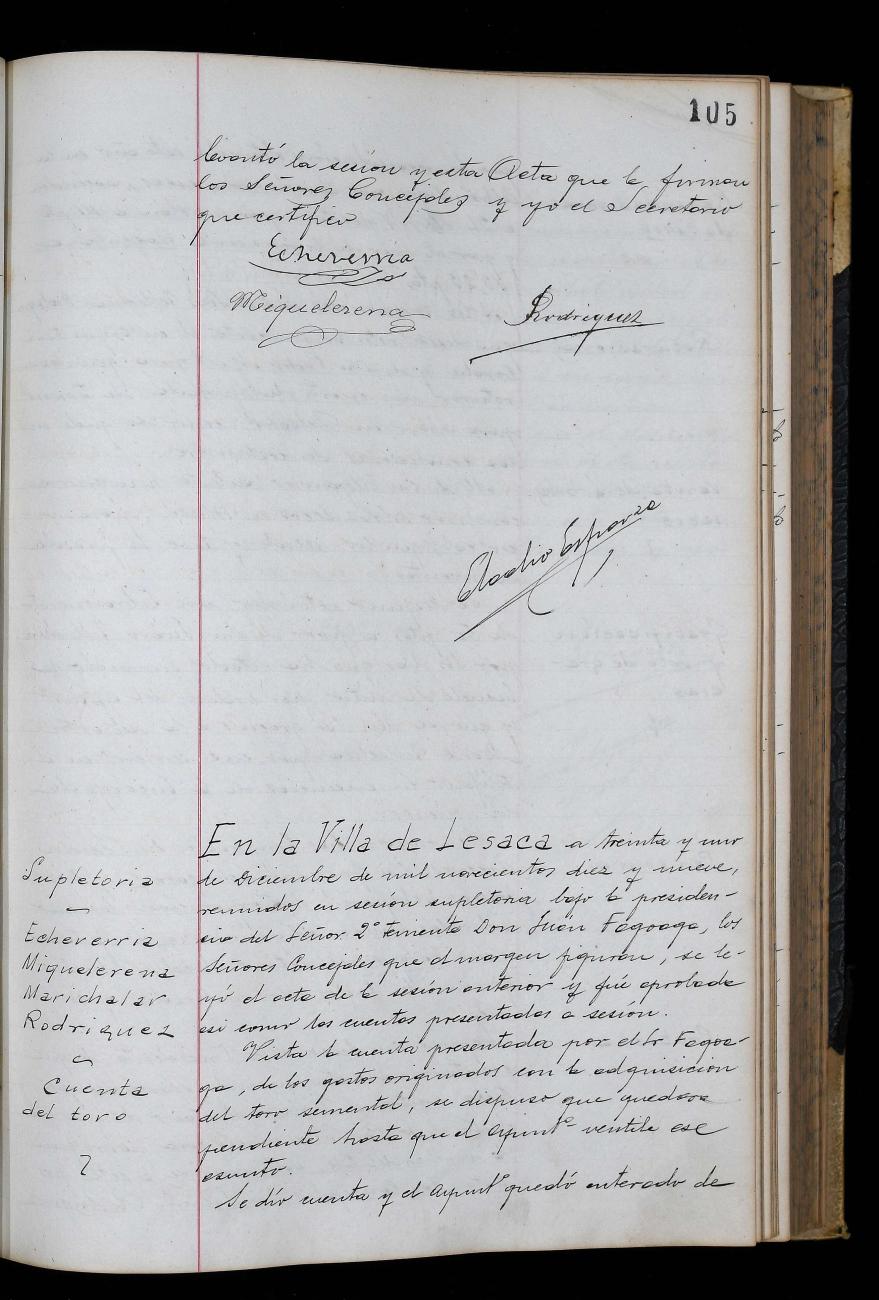 105
levantó la sesión y esta Acta que la firman
los Señores Concejales y yo el Secretario
que certifico
Echeverria
Miquelerena
Rodriguez
Eladio Esparza
En la Villa de Lesaca a treinta y uno
de Diciembre de mil novecientos diez y nueve,
reunidos en sesión supletoria bajo la presiden-
cia del Señor 2º teniente Don Juan Fagoaga, los
Señores Concejales que al margen figuran, se le-
yó el acta de la sesión anterior y fué aprobada
asi como las cuentas presentadas a sesión.
Vista la cuenta presentada por el Sr Fagoa-
ga, de los gastos originados con la adquisicion
del toro semental, se dispuso que quedara
pendiente hasta que el Ayuntº ventile ese
asunto.
Se dió cuenta y el Ayuntº quedó enterado de
Supletoria
Echeverria
Miquelerena
Marichalar
Rodriguez
Cuenta
del toro